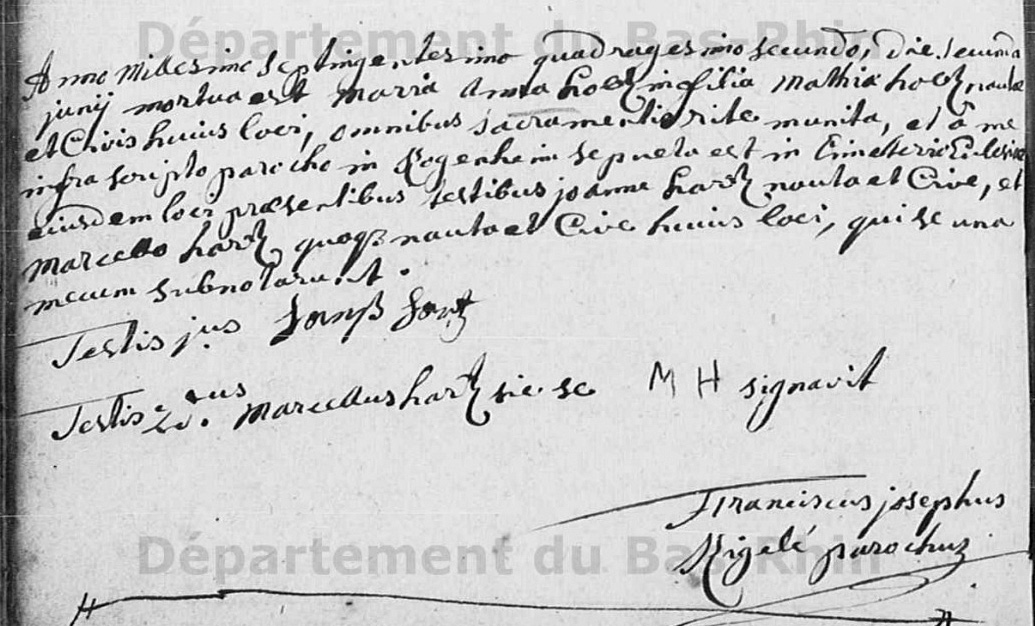 Département du Bas-Rhin
Anno Millesimo septingentesimo quadragesimo secundo, die secunda
junij mortua est Maria Anna filia Mathiæ nautæ
et Civis huius loci, omnibus sacramentis rite munita, et â me
infra scripto parocho in Rogenheim sepulta est in Cimeterio Ecclesiæ
eiusdem loci præsentibus testibus joanne hartz nauta et Cive, et
Marcello hartz quoqз nauta et Cive huius loci, qui se una
mecum subnotarunt.
Testis jus Hanß Hartz
Testis 2dus. Marcellus hartz sic se M H signavit
Franciscus josephus
Rigelé parochus
Département du Bas-Rhin